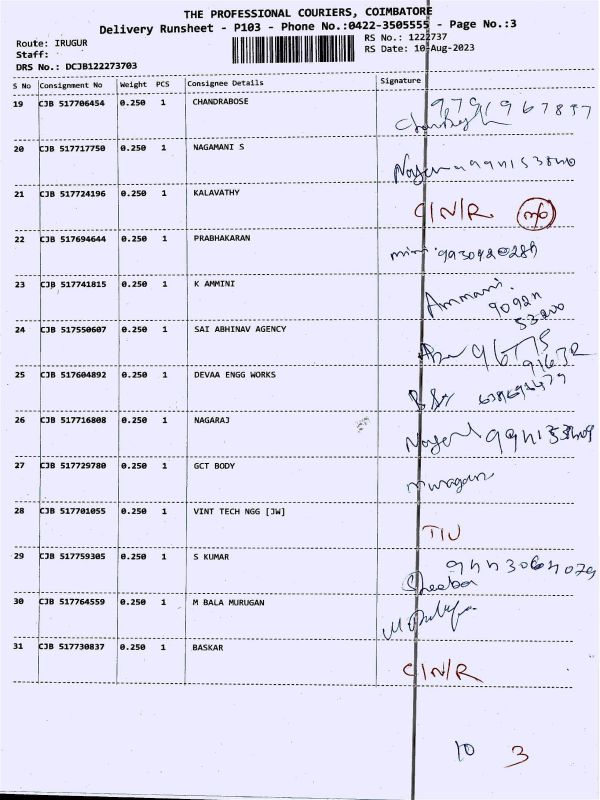 THE PROFESSIONAL COURIERS, COIMBATORE
Delivery Runsheet - P103 - Phone No.:0422-3505555 - Page No.:3
Route: IRUGUR RS No.: 1222737
Staff: RS Date: 10-Aug-2023
DRS No.: DCJB122273703
S No Consignment No Weight PCS Consignee Details Signature
19 CJB 517706454 0.250 1 CHANDRABOSE
20 CJB 517717750 0.250 1 NAGAMANI S
21 CJB 517724196 0.250 1 KALAVATHY C/N/R
22 CJB 517694644 0.250 1 PRABHAKARAN
23 CJB 517741815 0.250 1 K AMMINI Ammani.
24 CJB 517550607 0.250 1 SAI ABHINAV AGENCY
25 CJB 517604892 0.250 1 DEVAA ENGG WORKS
26 CJB 517716808 0.250 1 NAGARAJ
27 CJB 517729780 0.250 1 GCT BODY murugan
28 CJB 517701055 0.250 1 VINT TECH NGG [JW]
29 CJB 517759305 0.250 1 S KUMAR
30 CJB 517764559 0.250 1 M BALA MURUGAN
31 CJB 517730837 0.250 1 BASKAR C/N/R
10 3